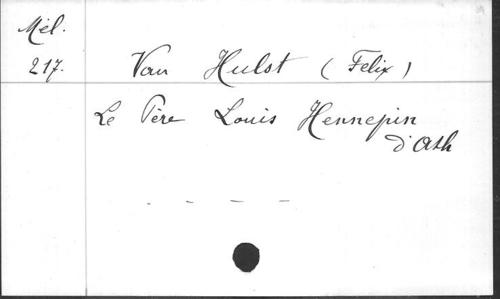 Mél.
217.
Van Hulst (Felix)
Le Père Louis Hennepin
d'Ath
- - - -